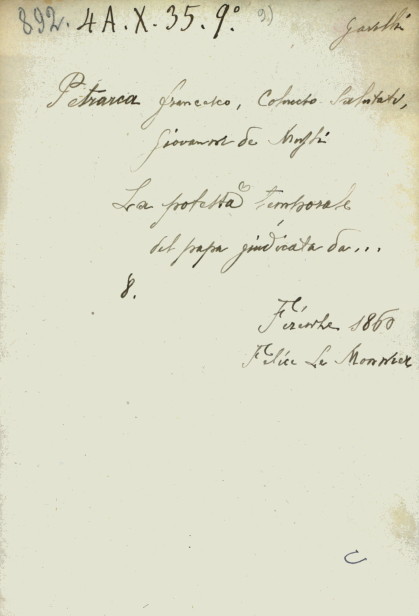 892. 4A.X.35.9º 9)
Petrarca Francesco, Coluccio Salutati,
Giovanni de
La potestà temporale
del papa giudicata da...
8.
Firenze 1860
Felice Le Monnier
C